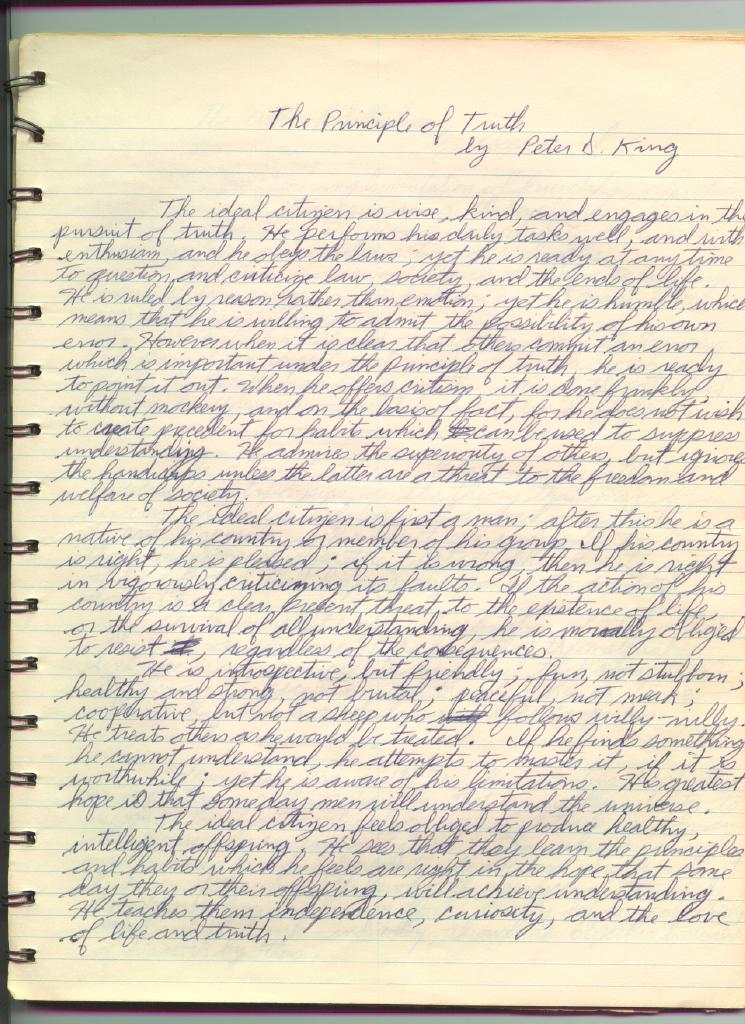 The Principle of Truth
by Peter D. King
The ideal citizen is wise, kind, and engages in the
pursuit of truth. He performs his daily tasks well, and with
enthusiasm, and he obeys the laws; yet he is ready at any time
to question and criticize law, society, and the ends of life.
He is ruled by reason rather than emotion; yet he is humble, which
means that he is willing to admit the possibility of his own
error. However when it is clear that others commit an error
which is important under the principle of truth, he is ready
to point it out. When he offers critism, it is done frankly,
without mockery, and on the basis of fact, for he does not wish
to create precedent for habits which can be used to suppress
understanding. He admires the superiority of others, but ignores
the handicaps unless the latter are a threat to the freedom and
welfare of society.
The ideal citizen is first a man; after this he is a
native of his country or member of his group. If his country
is right, he is pleased; if it is wrong, then he is right
in vigorously criticizing its faults. If the action of his
country is a clear, present threat to the existence of life,
or the survival of all understanding, he is morally obliged
to resist, regardless of the consequences.
He is introspective, but friendly; firm, not stubborn;
healthy and strong, not brutal; peaceful, not meak;
cooperative, but not a sheep who follows willy-nilly.
He treats others as he would be treated. If he finds something
he cannot understand, he attempts to master it, if it is
worthwhile; yet he is aware of his limitations. His greatest
hope is that some day men will understand the universe.
The ideal citizen feels obliged to produce healthy,
intelligent offspring. He sees that they learn the principles
and habits which he feels are right in the hope that some
day they or their offspring, will achieve understanding.
He teaches them independence, curiosity, and the love
of life and truth.